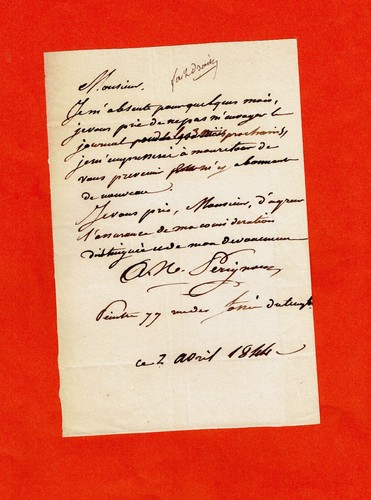 Monsieur,
Je m'absente pour quelques mois,
je vous prie de ne pas m'envoyer le
journal prochains,
je m'empresserai à mon retour de
vous prevenir m'y abonnant
de nouveau.
Je vous prie, Monsieur, d'agreer
l'assurance de ma consideration
distinguée et de mon devouement
A. N. Perignon
Peintre 77 rue des fossés du temple
ce 2 avril 1844